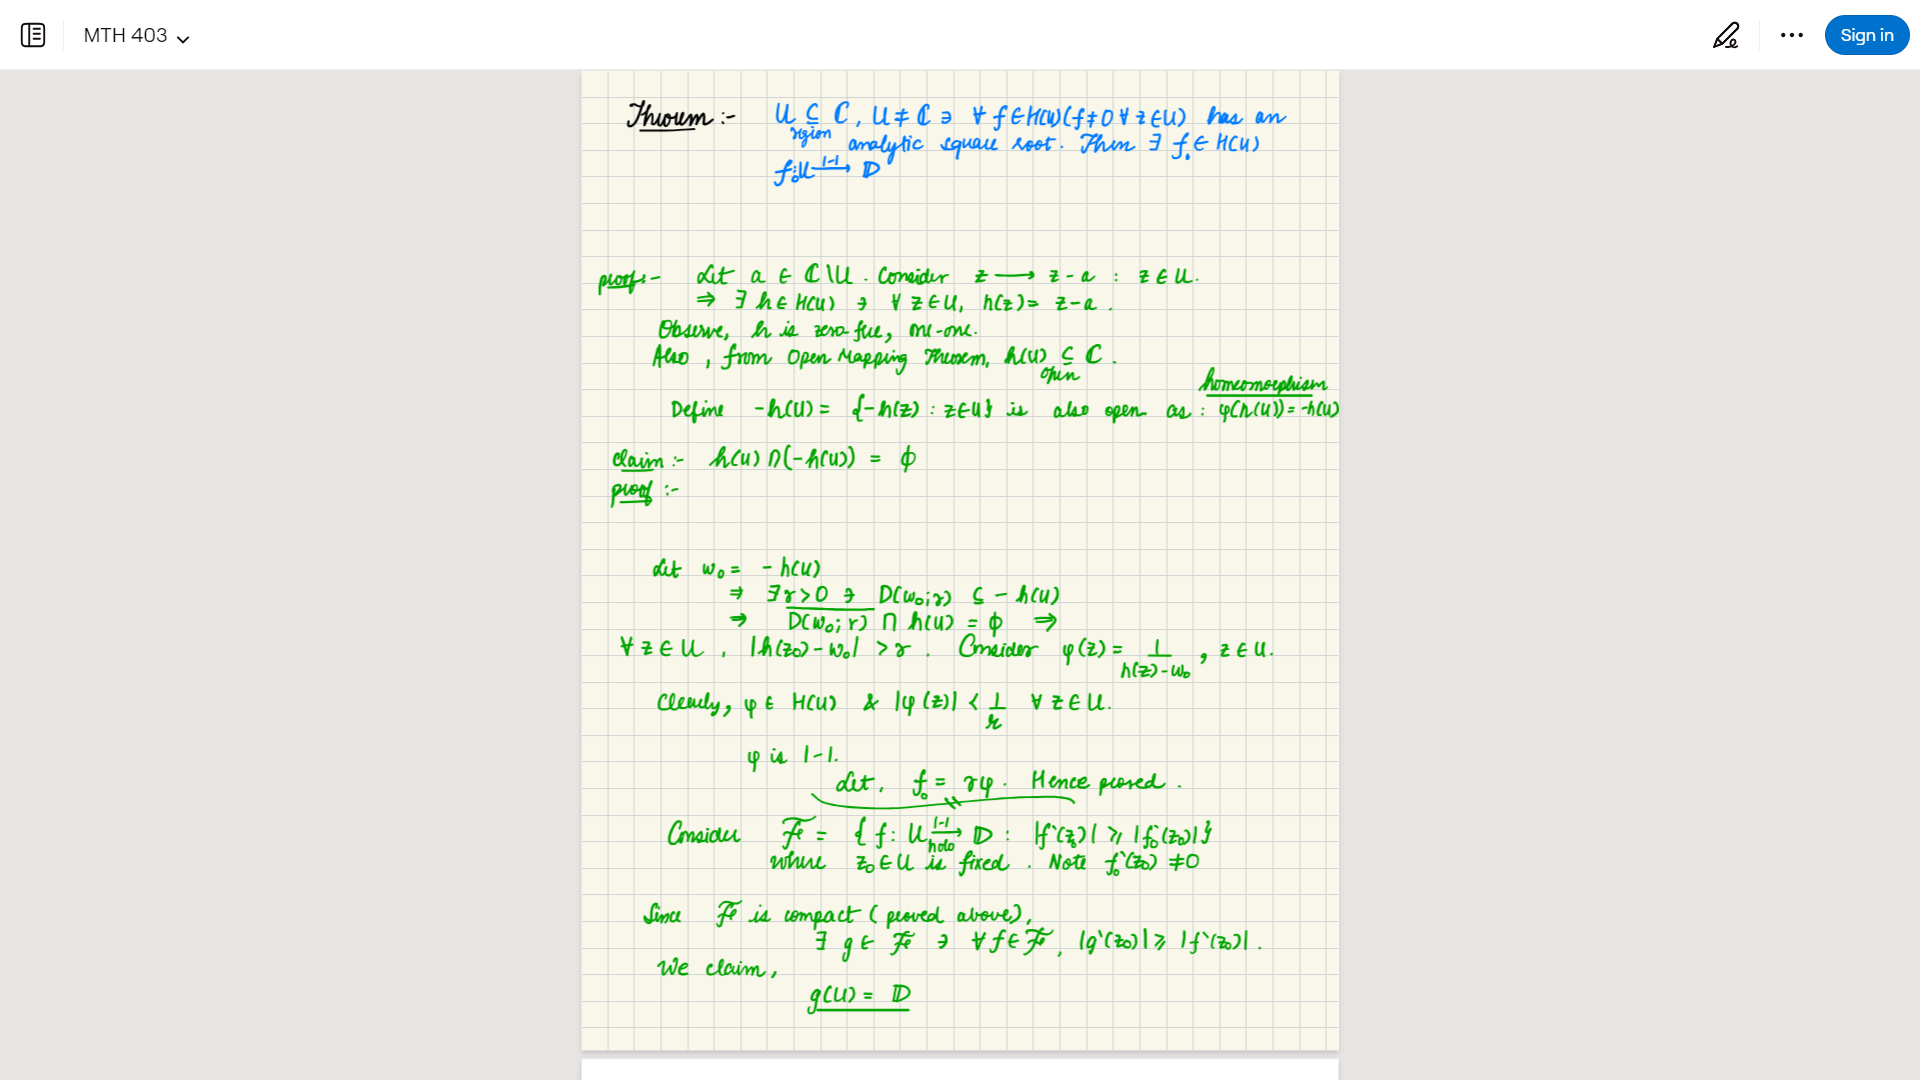 MTH 403
Sign in
Theorem :- U ⊆ ℂ, U ≠ ℂ ∋ ∀ f ∈ H(U) (f ≠ 0 ∀ z ∈ U) has an
region analytic square root. Then ∃ f₀ ∈ H(U)
f₀: U 1-1⟶ 𝔻
proof:- Let a ∈ ℂ\U. Consider z ⟶ z-a : z ∈ U.
⇒ ∃ h ∈ H(U) ∋ ∀ z ∈ U, h(z) = z-a.
Observe, h is zero-free, one-one.
Also, from Open Mapping Theorem, h(U) ⊆ ℂ.
open
homeomorphism
Define -h(U) = {-h(z) : z ∈ U} is also open as : φ(h(U)) = -h(U)
Claim :- h(U) ∩ (-h(U)) = ϕ
proof :-
Let w₀ = -h(U)
⇒ ∃ r > 0 ∋ D(w₀; r) ⊆ -h(U)
⇒ D(w₀; r) ∩ h(U) = ϕ ⇒
∀ z ∈ U, |h(z₀) - w₀| > r. Consider φ(z) = 1/(h(z)-w₀), z ∈ U.
Clearly, φ ∈ H(U) & |φ(z)| < 1/r ∀ z ∈ U.
φ is 1-1.
Let, f₀ = rφ. Hence proved.
Consider ℱ = {f: U 1-1⟶ 𝔻 : |f`(z₀)| ⩾ |f₀`(z₀)|}
holo
where z₀ ∈ U is fixed. Note f₀`(z₀) ≠ 0
Since ℱ is compact (proved above),
∃ g ∈ ℱ ∋ ∀ f ∈ ℱ, |g`(z₀)| ⩾ |f`(z₀)|.
We claim,
g(U) = 𝔻